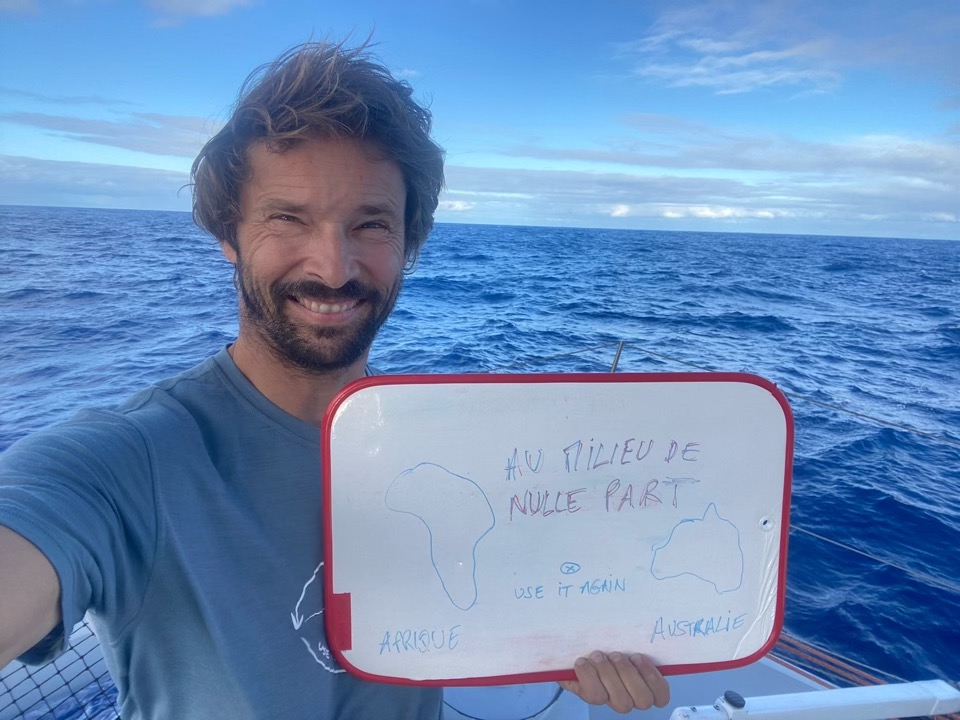 AU MILIEU DE
NULLE PART
USE IT AGAIN
AFRIQUE
AUSTRALIE